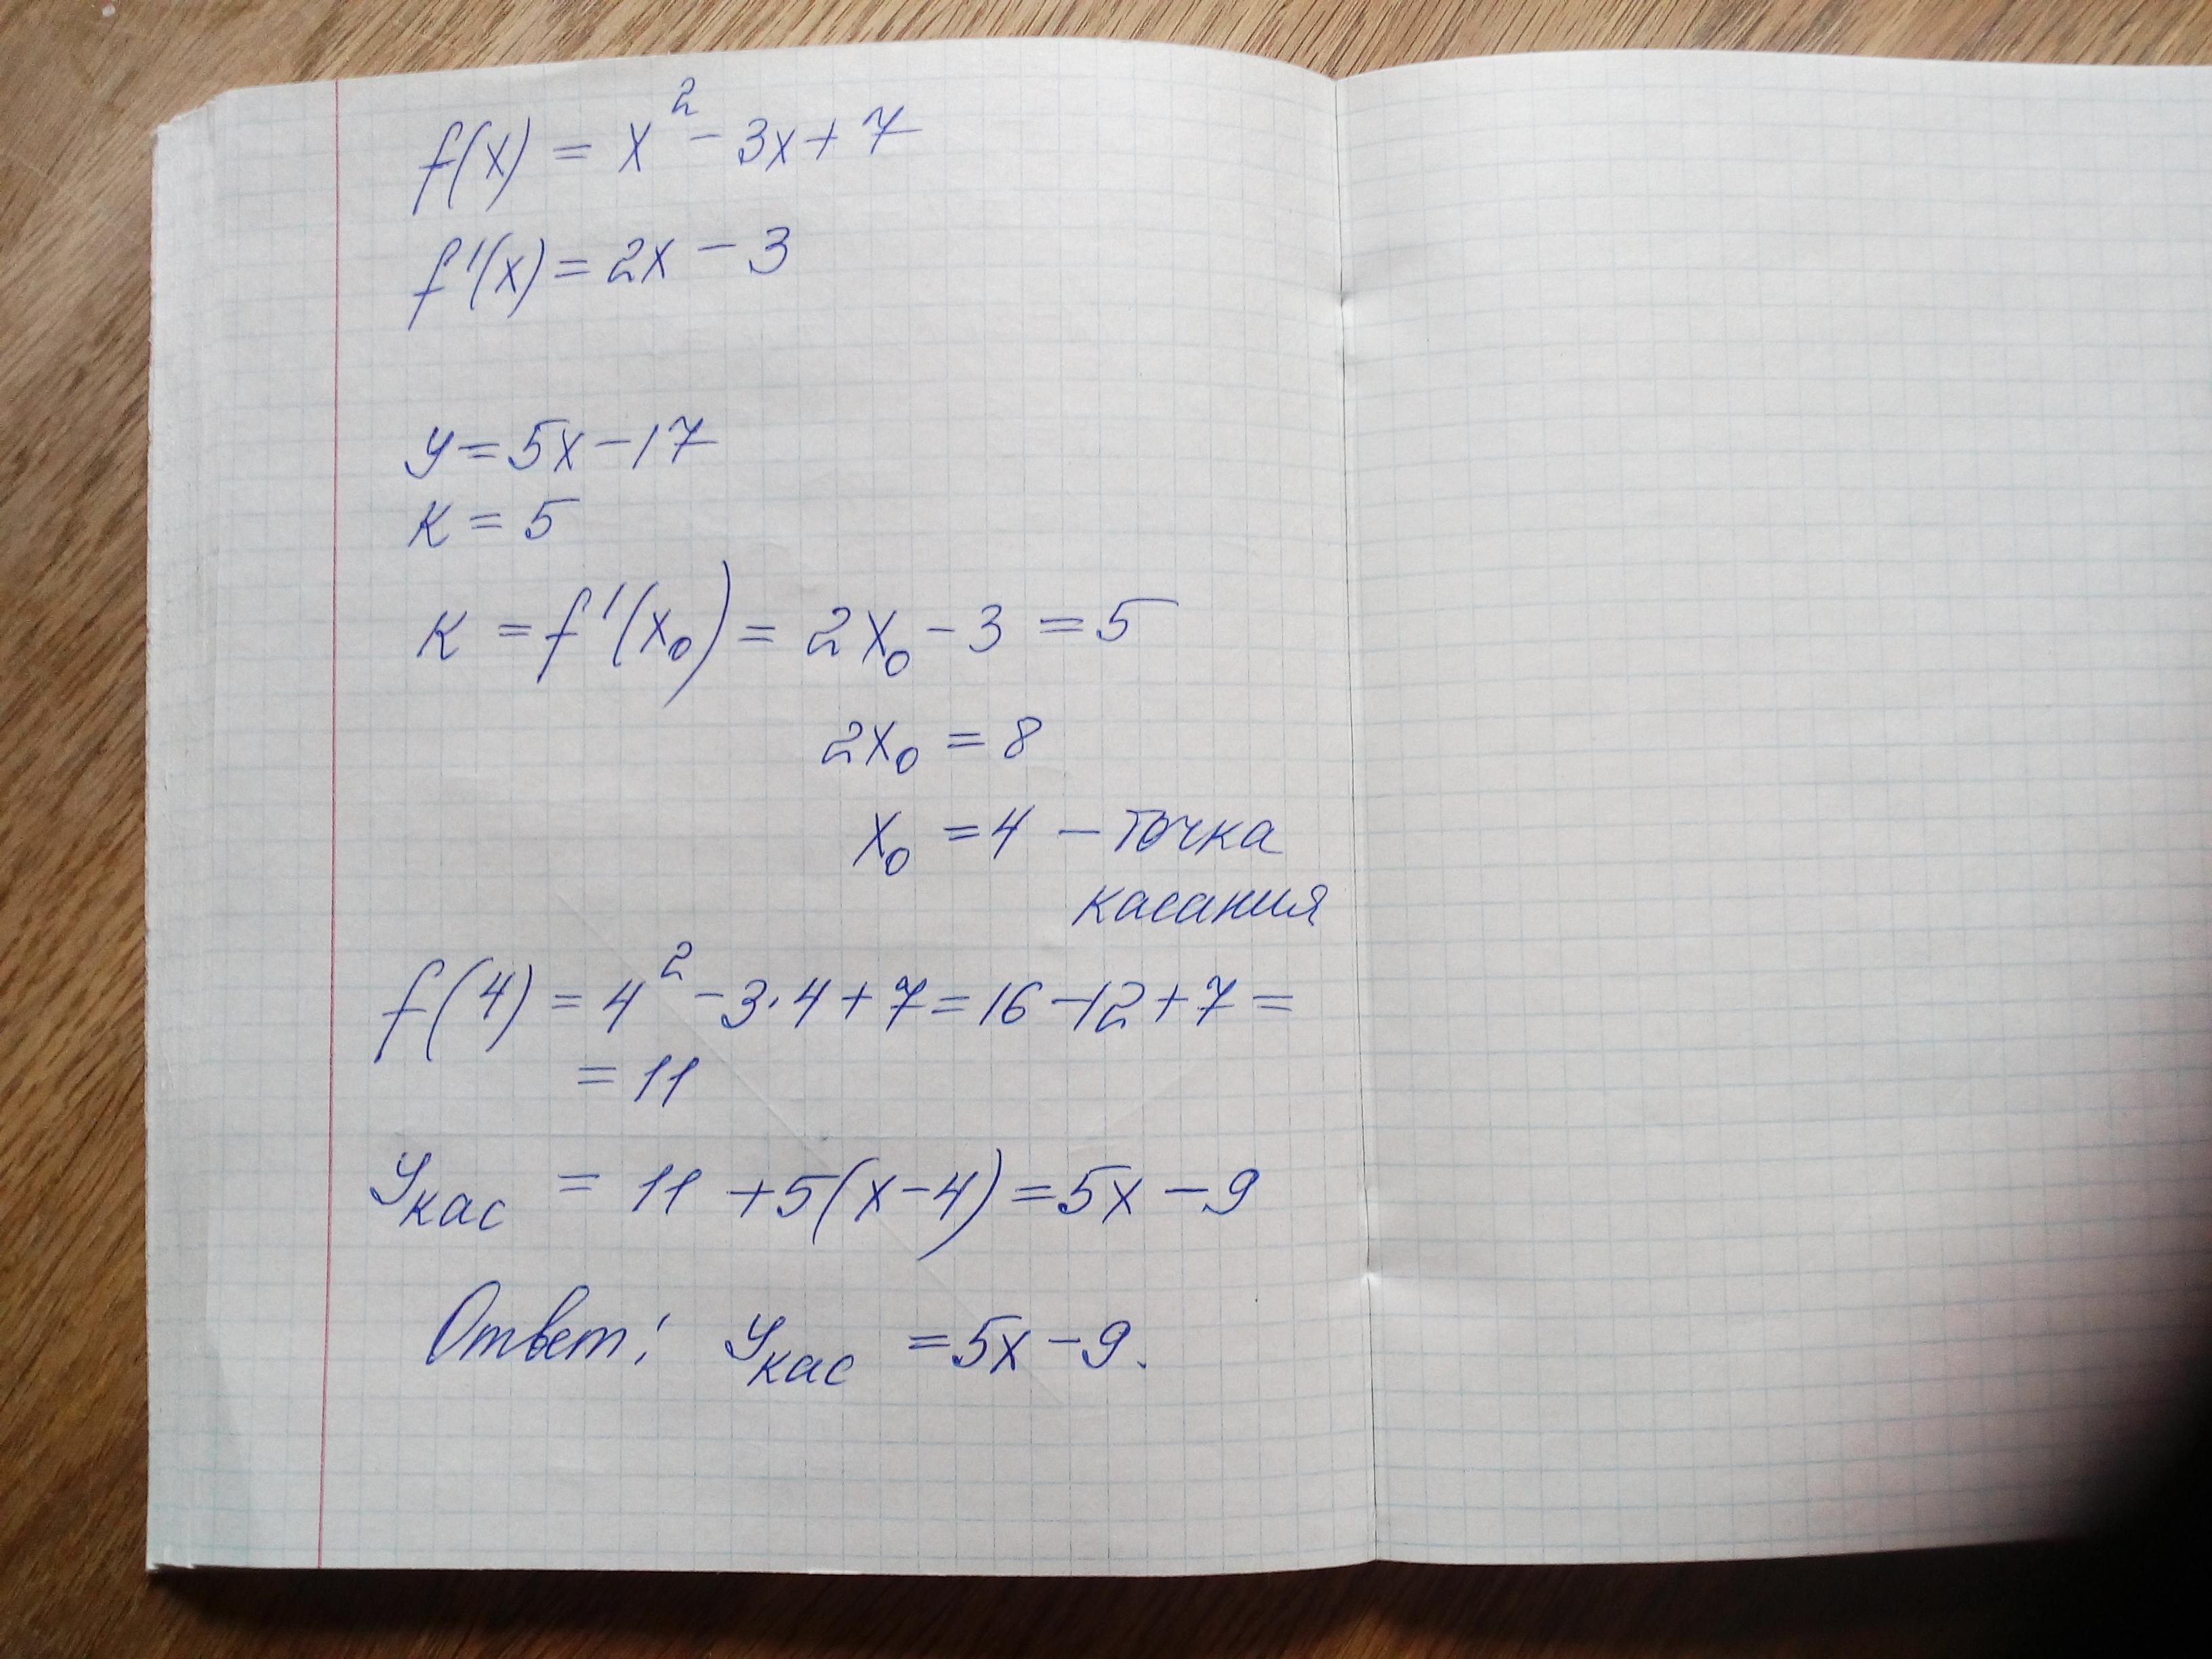 f(x) = x² - 3x + 7
f'(x) = 2x - 3
y = 5x - 17
к = 5
к = f'(x₀) = 2x₀ - 3 = 5
2x₀ = 8
x₀ = 4 - точка
касания
f(4) = 4² - 3·4 + 7 = 16 - 12 + 7 =
= 11
yкас = 11 + 5(x - 4) = 5x - 9
Ответ: yкас = 5x - 9.